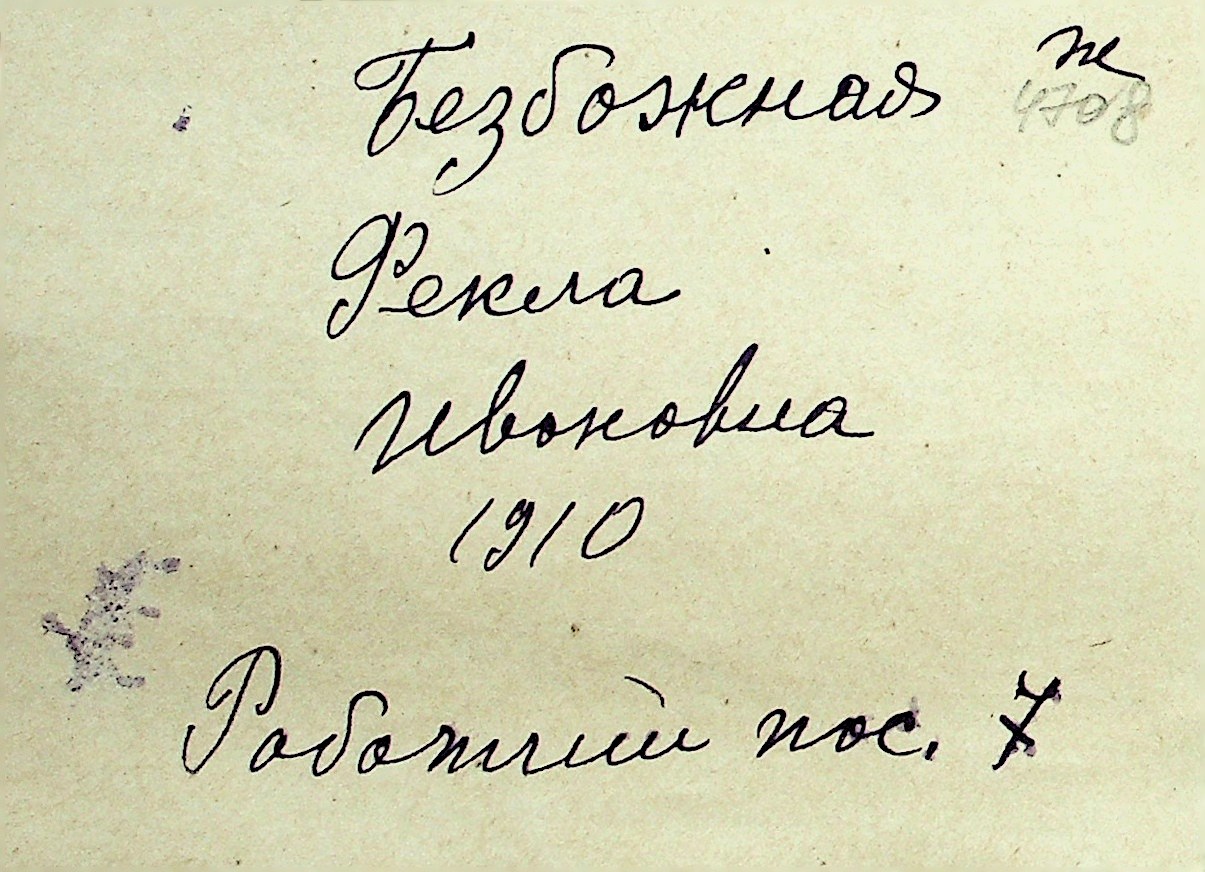 Безбожная ж
4708
Фекла
Ивановна
1910
Рабочий пос. 7